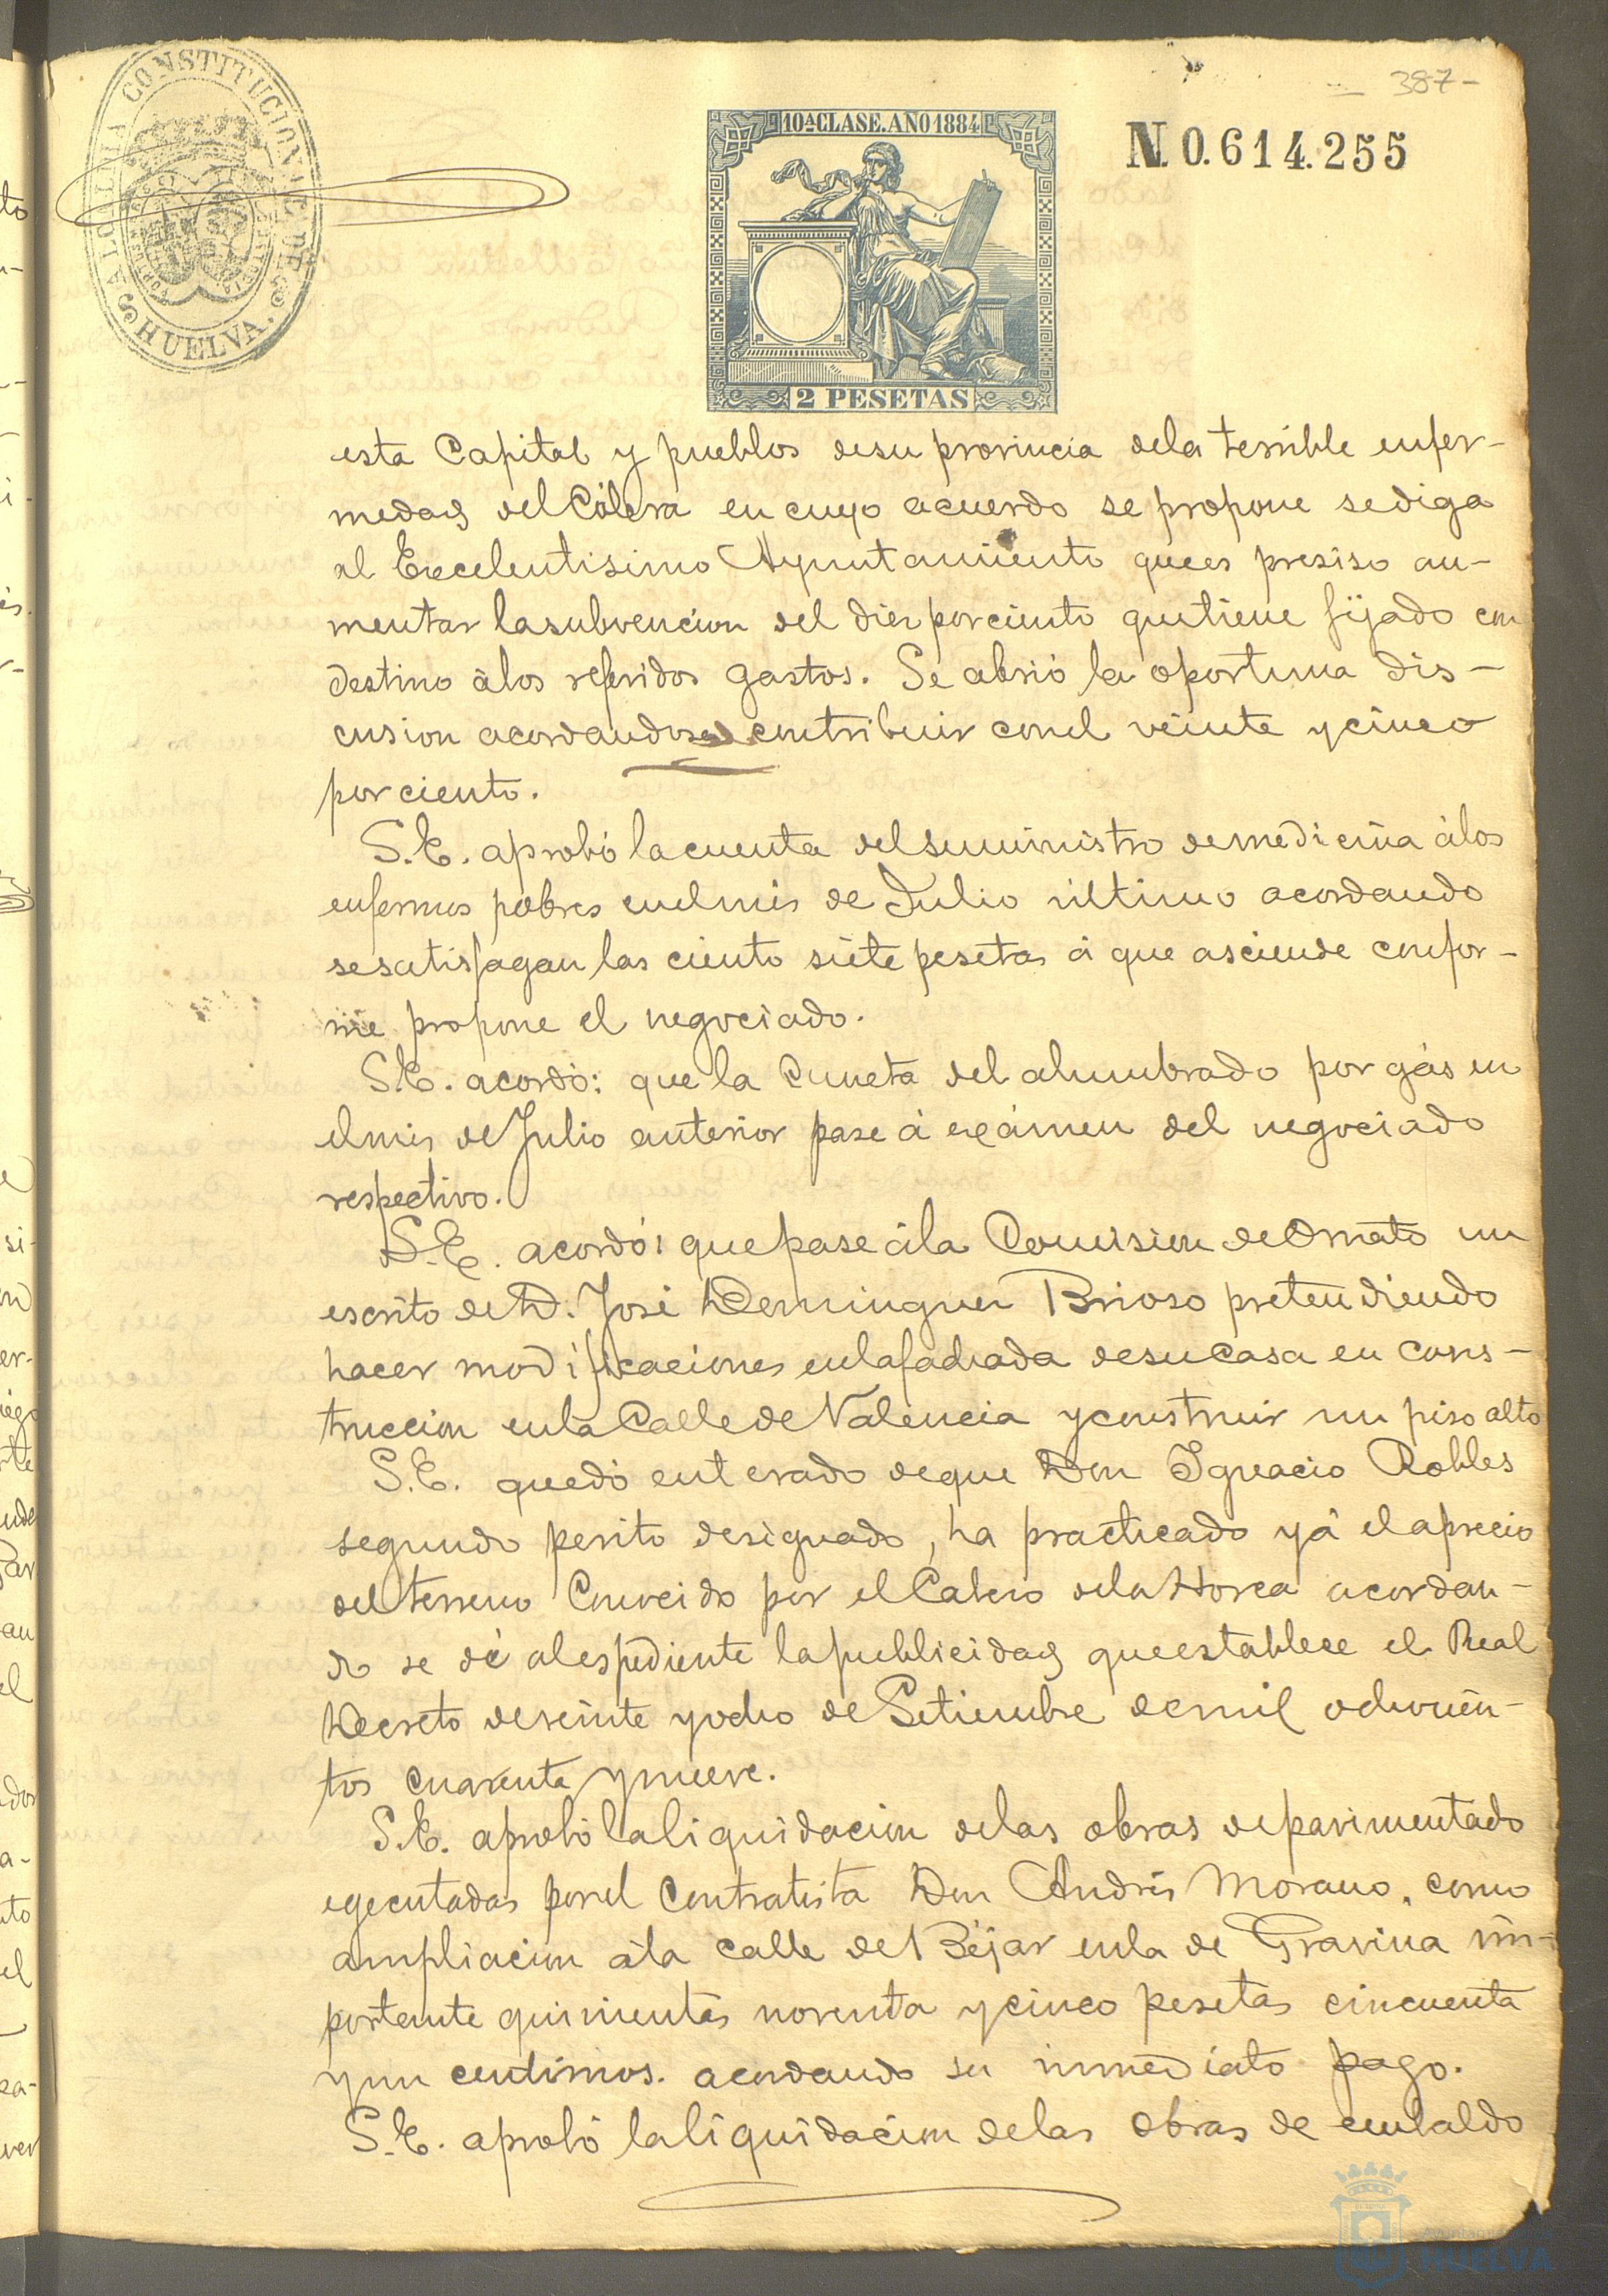 387-
ALCALDIA CONSTITUCIONAL DE HUELVA.
10ª CLASE. AÑO 1884
N. 0.614.255
2 PESETAS
esta Capital y pueblos desu provincia dela terrible enfer-
medad del Cólera en cuyo acuerdo se propone sediga
al Excelentisimo Ayuntamiento quees presiso au-
mentar lasubvencion del diez porciento quetiene fijado con
destino álos referidos gastos. Se abrió la oportuna dis-
cusion acordandose contribuir conel veinte ycinco
por ciento.
S.E. aprobó lacuenta del suministro demedicina álos
enfermos pobres enelmes de Julio último acordando
sesatisfagan las ciento siete pesetas á que asciende confor-
me propone el negociado.
S.E. acordó: que la Cuneta del alumbrado por gás en
elmes de Julio anterior pase á exámen del negociado
respectivo.
S.E. acordó: quepase ála Comision deOrnato un
escrito de D. José Dominguez Brioso pretendiendo
hacer modificaciones enlafachada desucasa en cons-
truccion enla Calle de Valencia yconstruir un piso alto
S.E. quedó enterado deque Don Ignacio Robles
segundo perito designado, ha practicado yá el aprecio
del terreno Conocido por el Cabezo dela Horca acordan-
do se dé alespediente lapublicidad queestablece el Real
Decreto deveinte yocho de Setiembre demil ochocien-
tos cuarenta ynueve.
S.E. aprobó laliquidacion delas obras depavimentado
egecutadas porel Contratista Don Andrés Morano, como
ampliacion ála calle de Béjar enla de Gravina im-
portante quinientas noventa ycinco pesetas cincuenta
yun centimos. acordando su inmediato pago.
S.E. aprobó laliquidacion delas obras de embaldo
HUELVA